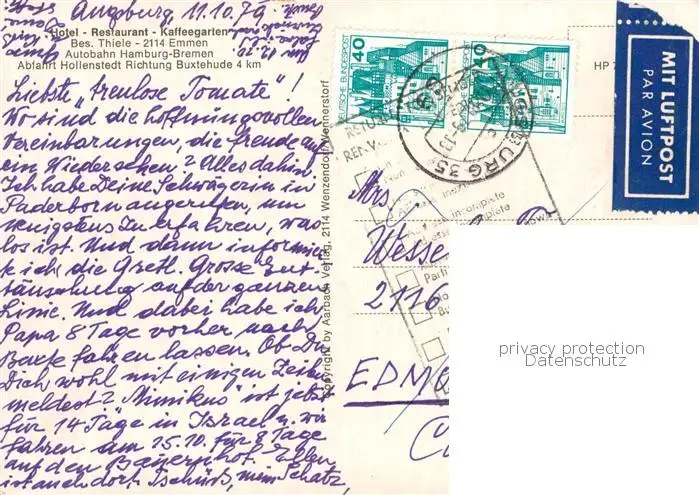 Augsburg, 11.10.79
Hotel - Restaurant - Kaffeegarten
Bes. Thiele - 2114 Emmen
Autobahn Hamburg-Bremen
Abfahrt Hollenstedt Richtung Buxtehude 4 km
Liebste „treulose Tomate"!
Wo sind die hoffnungsvollen
Vereinbarungen, die Freude auf
ein Wiedersehen? Alles dahin.
Ich habe Deine Schwägerin in
Paderborn angerufen, um
wenigstens zu erfahren, was
los ist. Und dann informier
ich die Gretl. Grosse Ent-
täuschung auf der ganzen
Linie. Und dabei habe ich
Papa 8 Tage vorher nach
fahren lassen. Ob Du
Dich wohl mit einigen Zeilen
meldest? "Minikus" ist jetzt
für 14 Tage in Israel u. wir
fahren am 15.10. für 8 Tage
auf den Bayernhof. Ellen
ist auch dort. Tschüß, mein Schatz,
Copyright by Aarbach Verlag, 2114 Wenzendorf/Wennerstorf
DEUTSCHE BUNDESPOST
40
40
MIT LUFTPOST
PAR AVION
HP
Mrs.
Wesse
2116
EDMO
privacy protection
Datenschutz